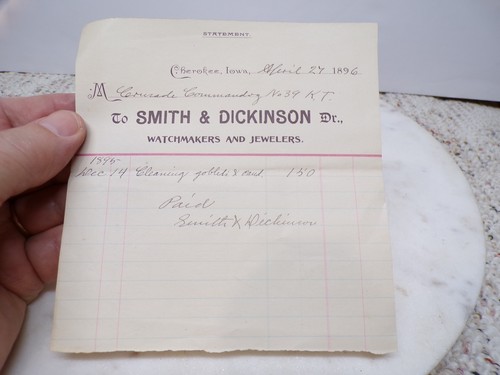 STATEMENT.
Cherokee, Iowa, April 27 1896
M Crusade Commandry No 39 K T.
To SMITH & DICKINSON Dr.,
WATCHMAKERS AND JEWELERS.
1895
Dec 14 Cleaning goblets & 150
Paid
Smith & Dickinson